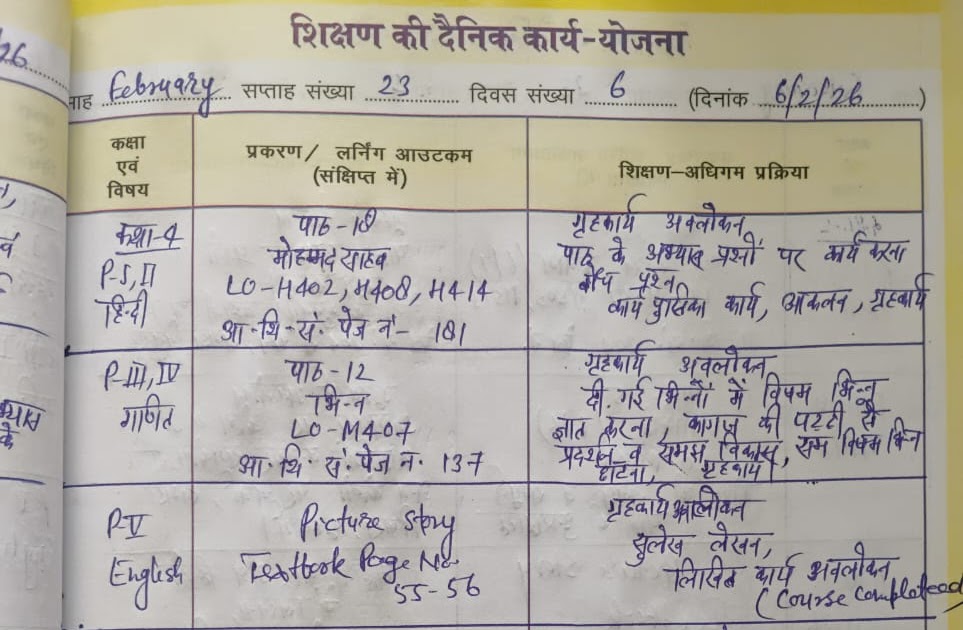 शिक्षण की दैनिक कार्य-योजना
माह February सप्ताह संख्या 23 दिवस संख्या 6 (दिनांक 6/2/26)
कक्षा एवं विषय
प्रकरण/ लर्निंग आउटकम (संक्षिप्त में)
शिक्षण-अधिगम प्रक्रिया
कक्षा-4
P-I, II
हिन्दी
पाठ-18
मोहम्मद साहब
LO-H402, H408, H414
आ·शि·सं· पेज नं- 181
गृहकार्य अवलोकन
पाठ के अभ्यास प्रश्नों पर कार्य करना
बोध प्रश्न
कार्य पुस्तिका कार्य, आकलन, गृहकार्य
P-III, IV
गणित
पाठ-12
भिन्न
LO-M407
आ·शि· सं· पेज न· 137
गृहकार्य अवलोकन
दी गई भिन्नों में विषम भिन्न
ज्ञात करना, कागज की पट्टी से
प्रदर्शन व समझ विकास, सम विषम भिन्न
छांटना, गृहकार्य
P-V
English
Picture Story
Textbook Page No.
55-56
गृहकार्य अवलोकन
सुलेख लेखन,
लिखित कार्य अवलोकन
(Course completead)